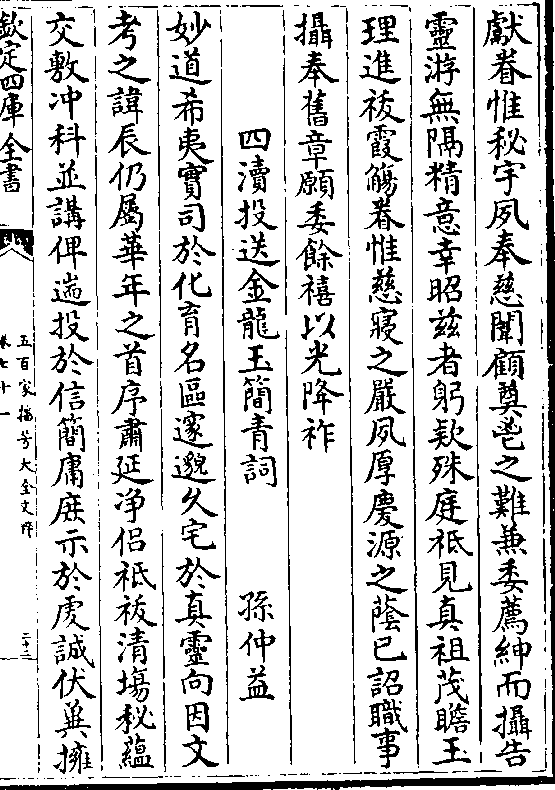 獻眷惟秘宇夙奉慈闈顧奠鬯之難兼委薦紳而攝告
靈游無隔精意幸昭茲者躬欵殊庭祗見真祖茂瞻玉
理進祓霞觴眷惟慈寢之嚴夙厚慶源之蔭已詔職事
攝奉舊章願委餘禧以光降祚
四瀆投送金龍玉簡青詞 孫仲益
妙道希夷寶司於化育名區邃邈乆宅於真靈向因文
考之諱辰仍屬華年之首序肅延浄侣祗祓清塲秘藴
交敷冲科並講俾遄投於信簡庸庶示於虔誠伏兾擁
欽定四庫全書
五百家播芳大全文粹
卷七十一
二十二